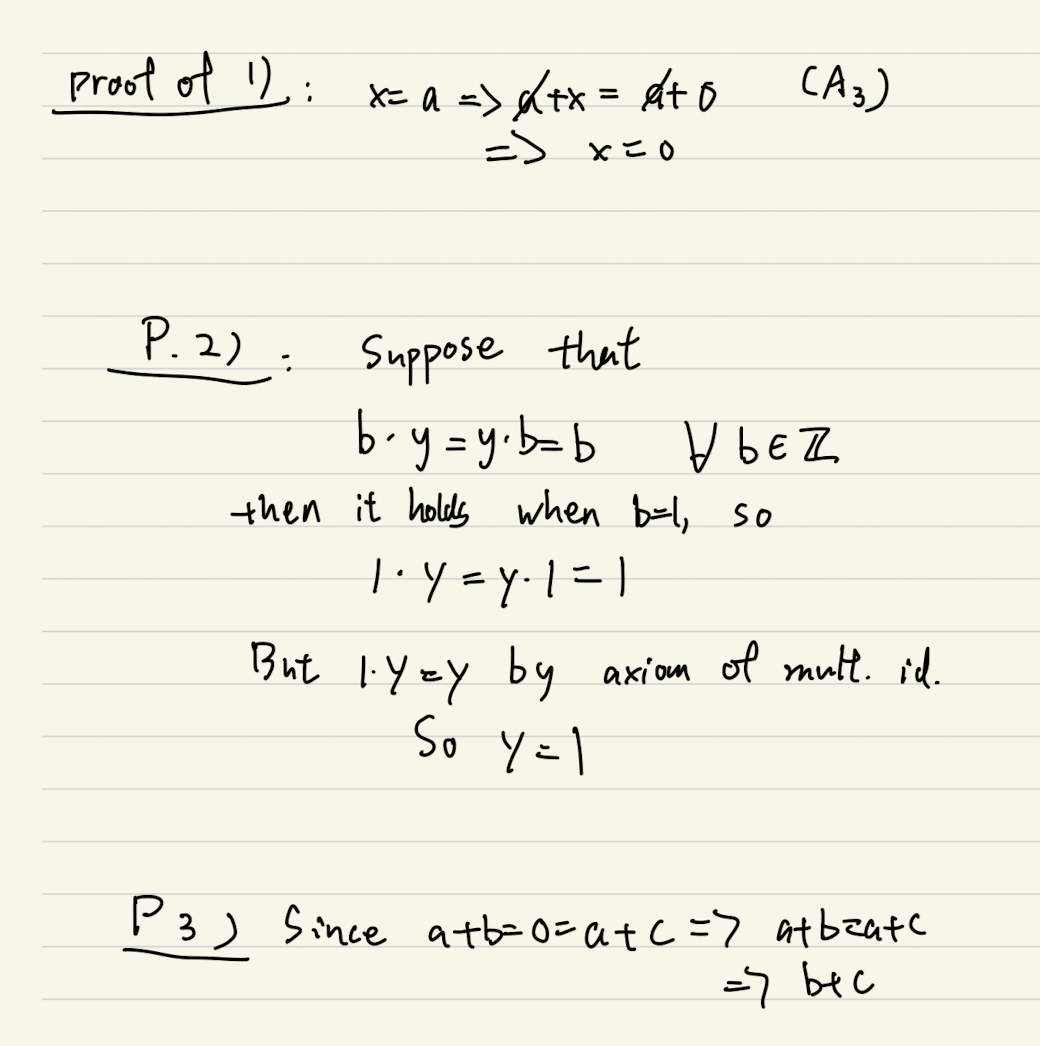 proof of 1) : x= a => a+x = a+0 (A₃)
=> x=0
P. 2) : Suppose that
b·y=y·b=b ∀ b∈ℤ
then it holds when b=1, so
1·y=y·1=1
But 1·y=y by axiom of mult. id.
So y=1
P 3) Since a+b=0=a+c => a+b=a+c
=> b+c